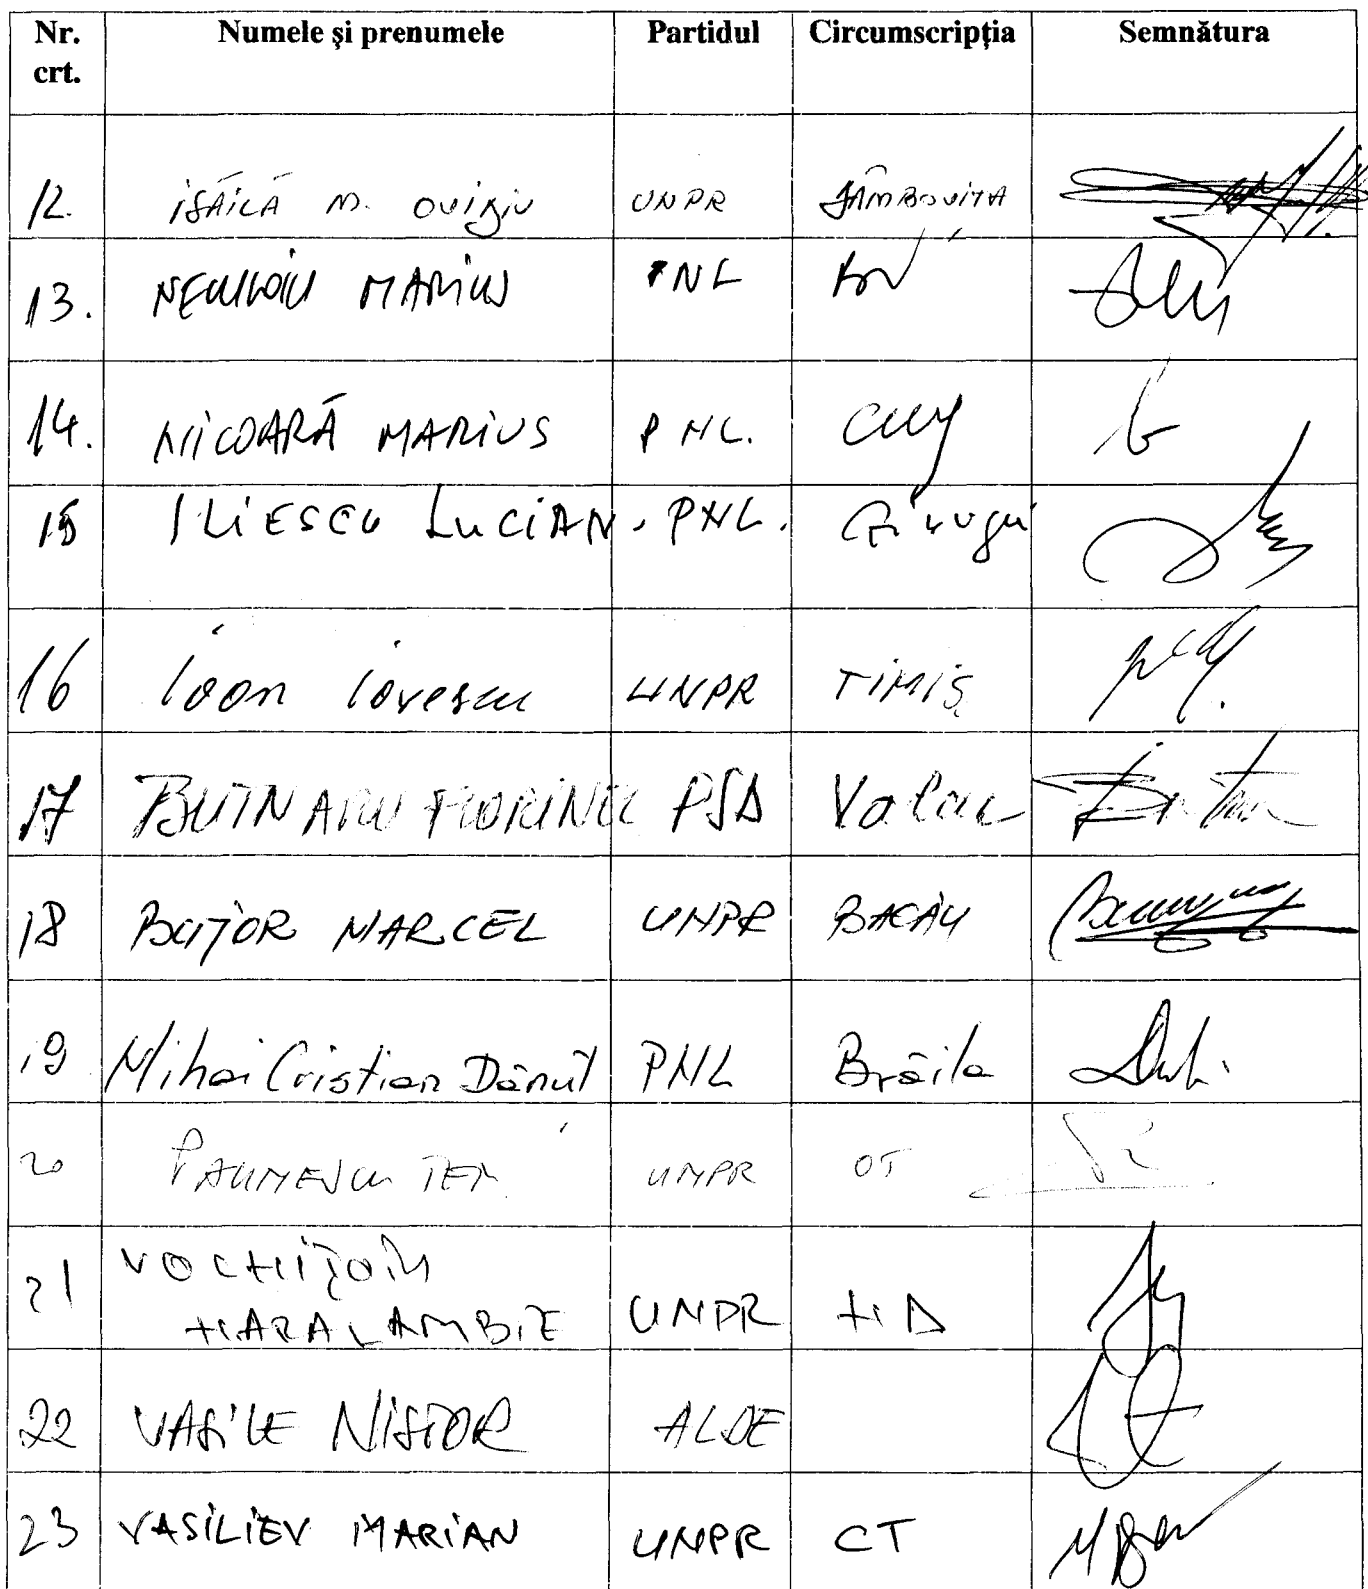 Nr. crt. Numele și prenumele Partidul Circumscripția Semnătura
12. ISĂILĂ M. OVIDIU UNPR DÂMBOVIȚA
13. MARIUS PNL BV
14. NICOARĂ MARIUS PNL. CLUJ
15 ILIESCU LUCIAN. PNL. Giurgiu
16 Ioan Iovescu UNPR TIMIȘ
17 BUTNARU FLORINEL PSD Vaslui
18 BUȚOR MARCEL UNPR BACĂU
19 Mihai Cristian Dănuț PNL Brăila
20 UNPR OT
21 VOCHIȚOIU
HARALAMBIE UNPR HD
22 VASILE NISTOR ALDE
23 VASILIEV MARIAN UNPR CT